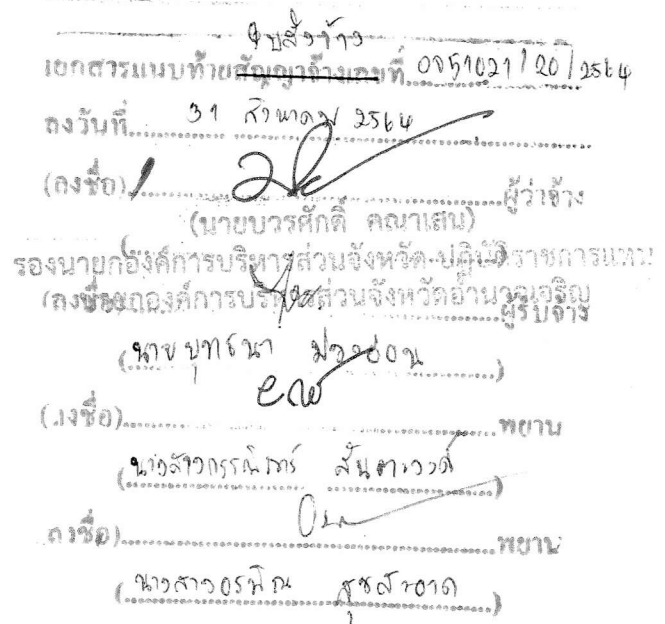 ใบสั่งจ้าง
เอกสารแนบท้ายสัญญาจ้างเลขที่ 0951021/20/2564
ลงวันที่ 31 สิงหาคม 2564
(ลงชื่อ) ผู้ว่าจ้าง
(นายบวรศักดิ์ คณาเสน)
รองนายกองค์การบริหารส่วนจังหวัด ปฏิบัติราชการแทน
นายกองค์การบริหารส่วนจังหวัดอำนาจเจริญ
(ลงชื่อ) ผู้รับจ้าง
(นายยุทธนา ม่วงอ่อน)
(ลงชื่อ) พยาน
(นางสาวกรรณิการ์)
ลงชื่อ) พยาน
(นางสาวอรพิณ สุขสะอาด)